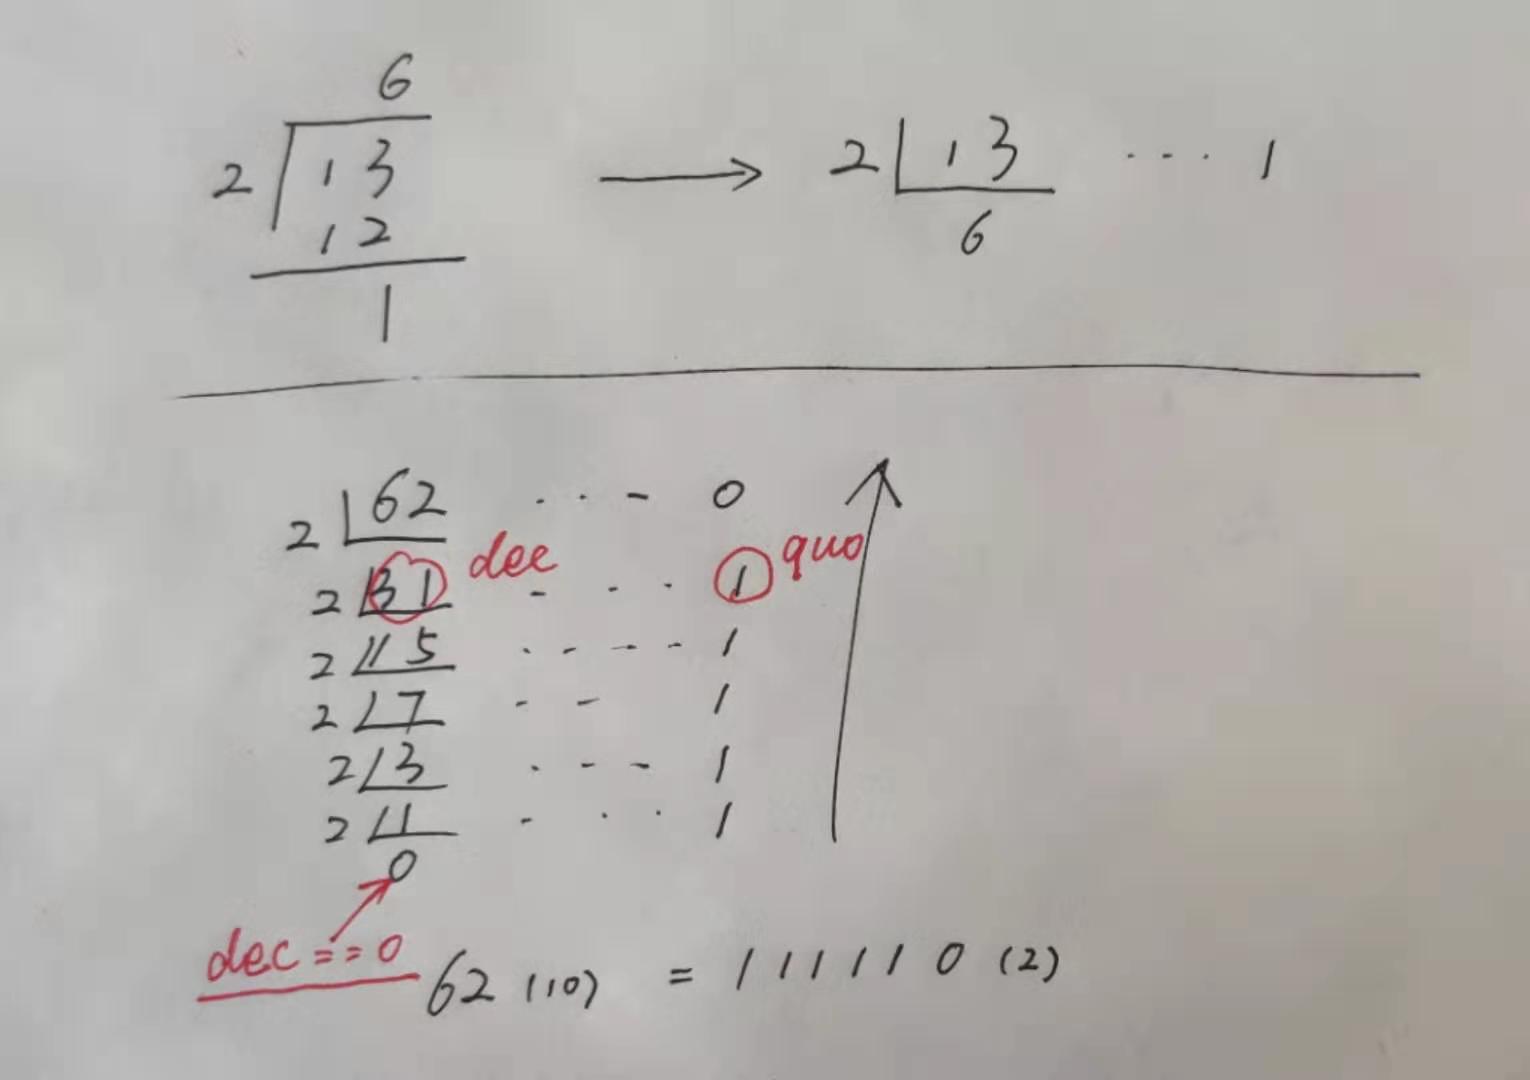 6
2 13 → 2 13 ... 1
12 6
1
2 62 ... - 0
2 31 dec - . . . 1 quo
2 15 . - - - - 1
2 7 - - 1
2 3 . - - - 1
2 1 - . . . 1
0
dec==0
62 (10) = 111110 (2)